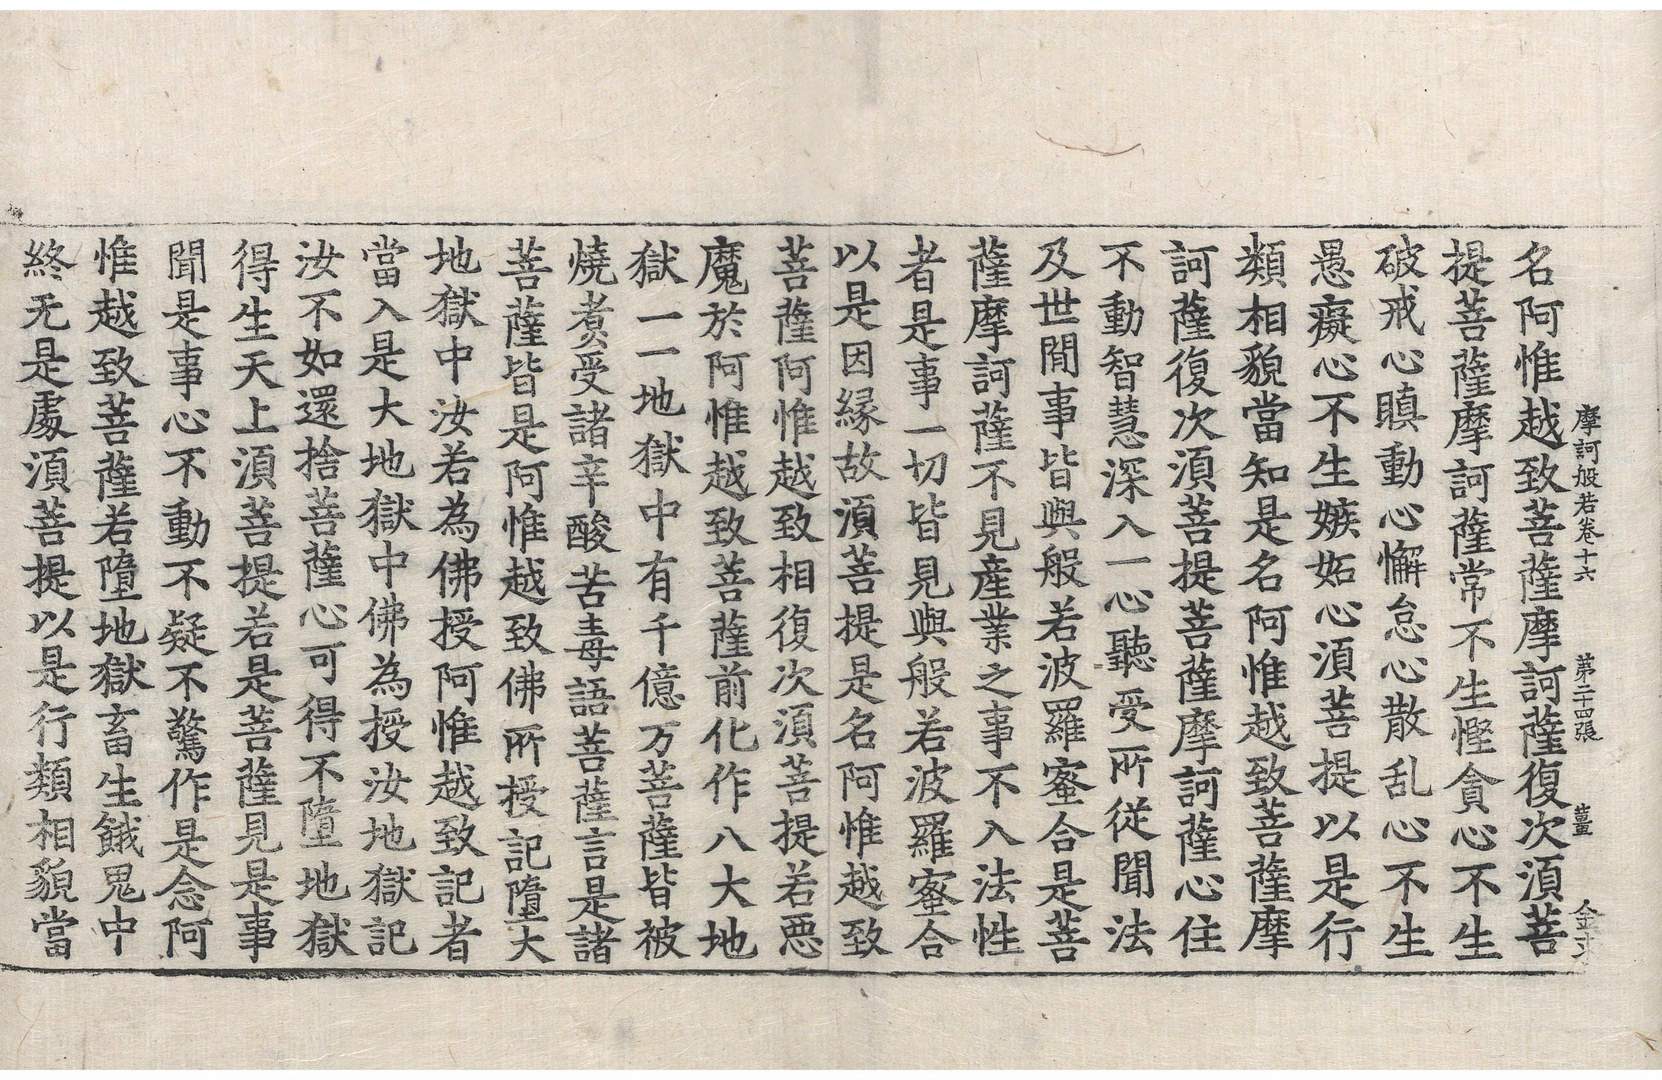 摩訶般若卷十六 第二十四張 薑 金
名阿惟越致菩薩摩訶薩復次湏菩
提菩薩摩訶薩常不生慳貪心不生
破戒心瞋動心懈怠心散乱心不生
愚癡心不生嫉妬心湏菩提以是行
類相貌當知是名阿惟越致菩薩摩
訶薩復次湏菩提菩薩摩訶薩心住
不動智慧深入一心聽受所従聞法
及世間事皆與般若波羅蜜合是菩
薩摩訶薩不見産業之事不入法性
者是事一切皆見與般若波羅蜜合
以是因縁故湏菩提是名阿惟越致
菩薩阿惟越致相復次湏菩提若悪
魔於阿惟越致菩薩前化作八大地
獄一一地獄中有千億万菩薩皆被
燒煑受諸辛酸苦毒語菩薩言是諸
菩薩皆是阿惟越致佛所授記墮大
地獄中汝若為佛授阿惟越致記者
當入是大地獄中佛為授汝地獄記
汝不如還捨菩薩心可得不墮地獄
得生天上湏菩提若是菩薩見是事
聞是事心不動不疑不驚作是念阿
惟越致菩薩若墮地獄畜生餓鬼中
終无是處湏菩提以是行類相貌當